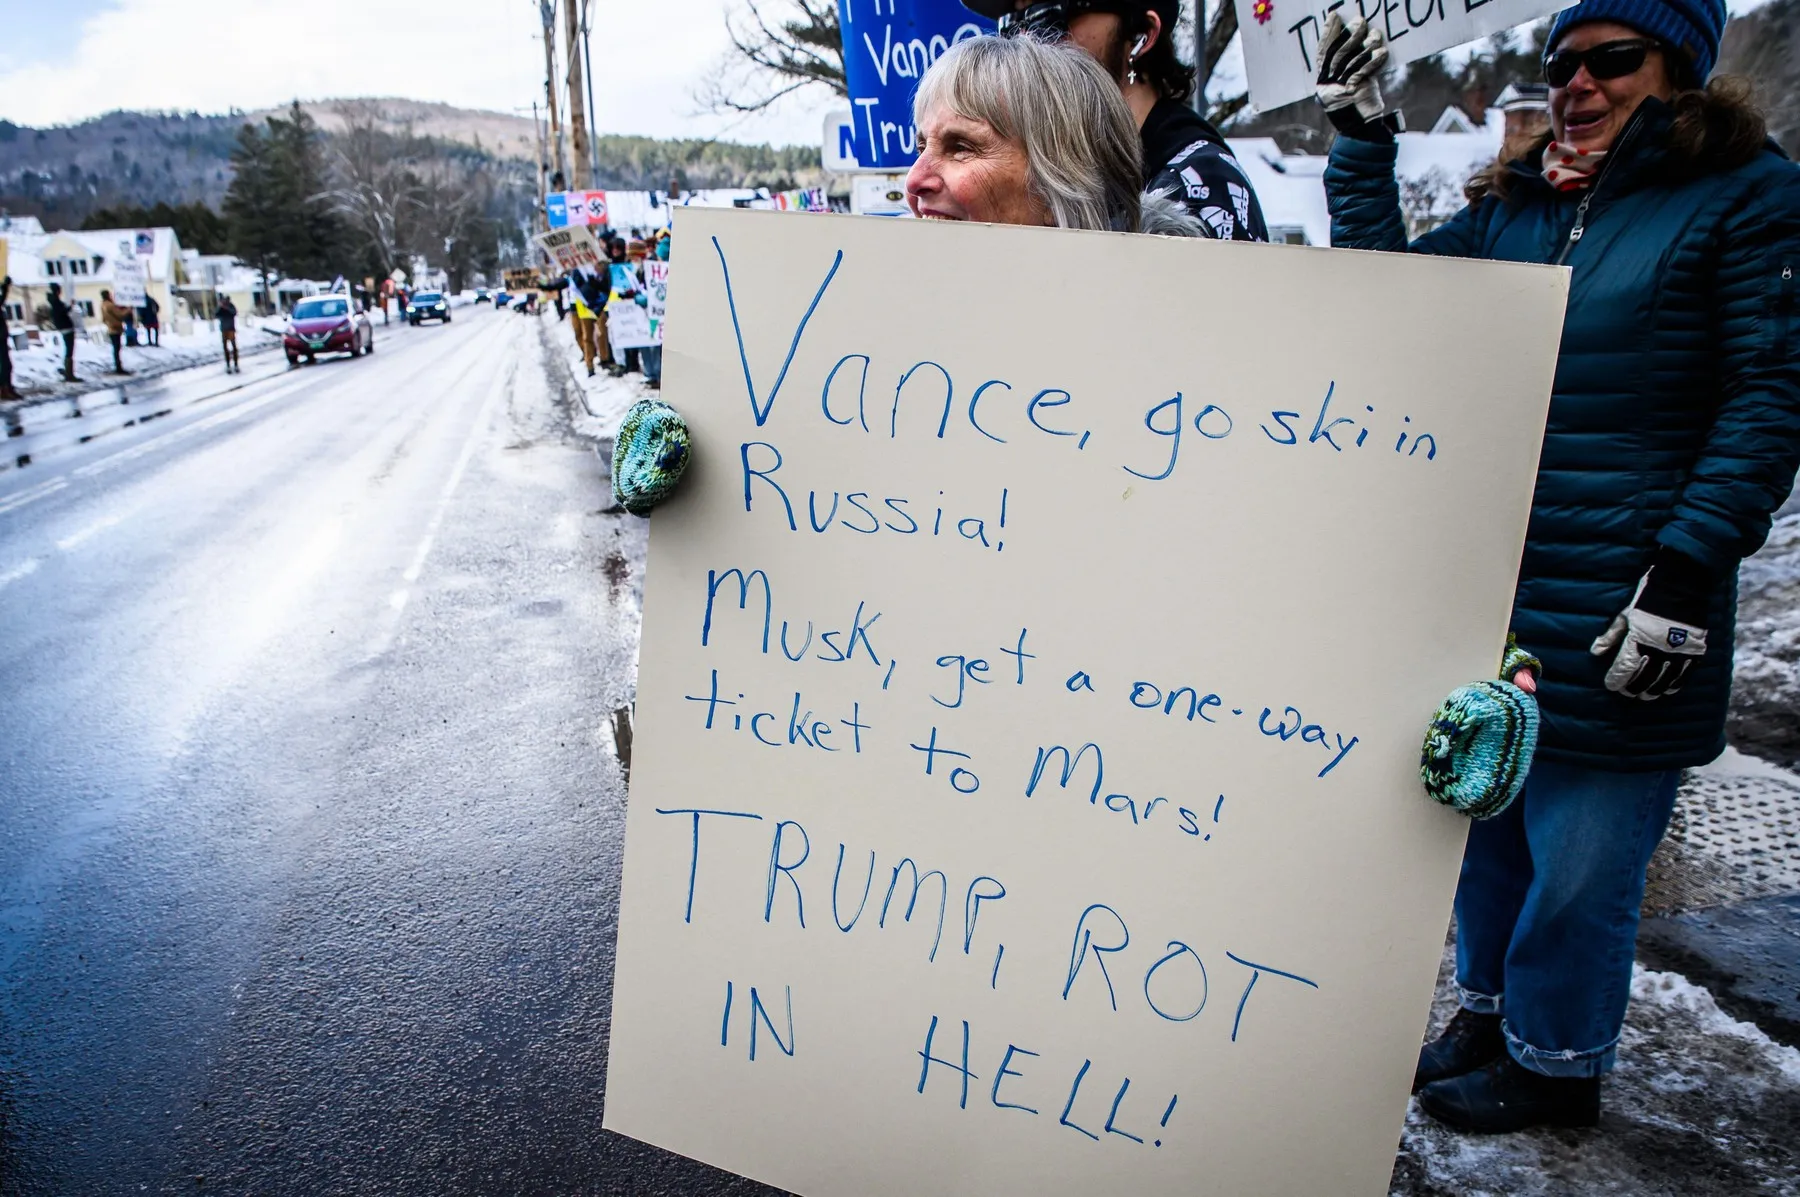 Vance
Tru
N
THE PEOPLE
las
NO
KINGS
PUTIN
Vance, go ski in
Russia!
Musk, get a one-way
ticket to Mars!
TRUMP, ROT
IN HELL!